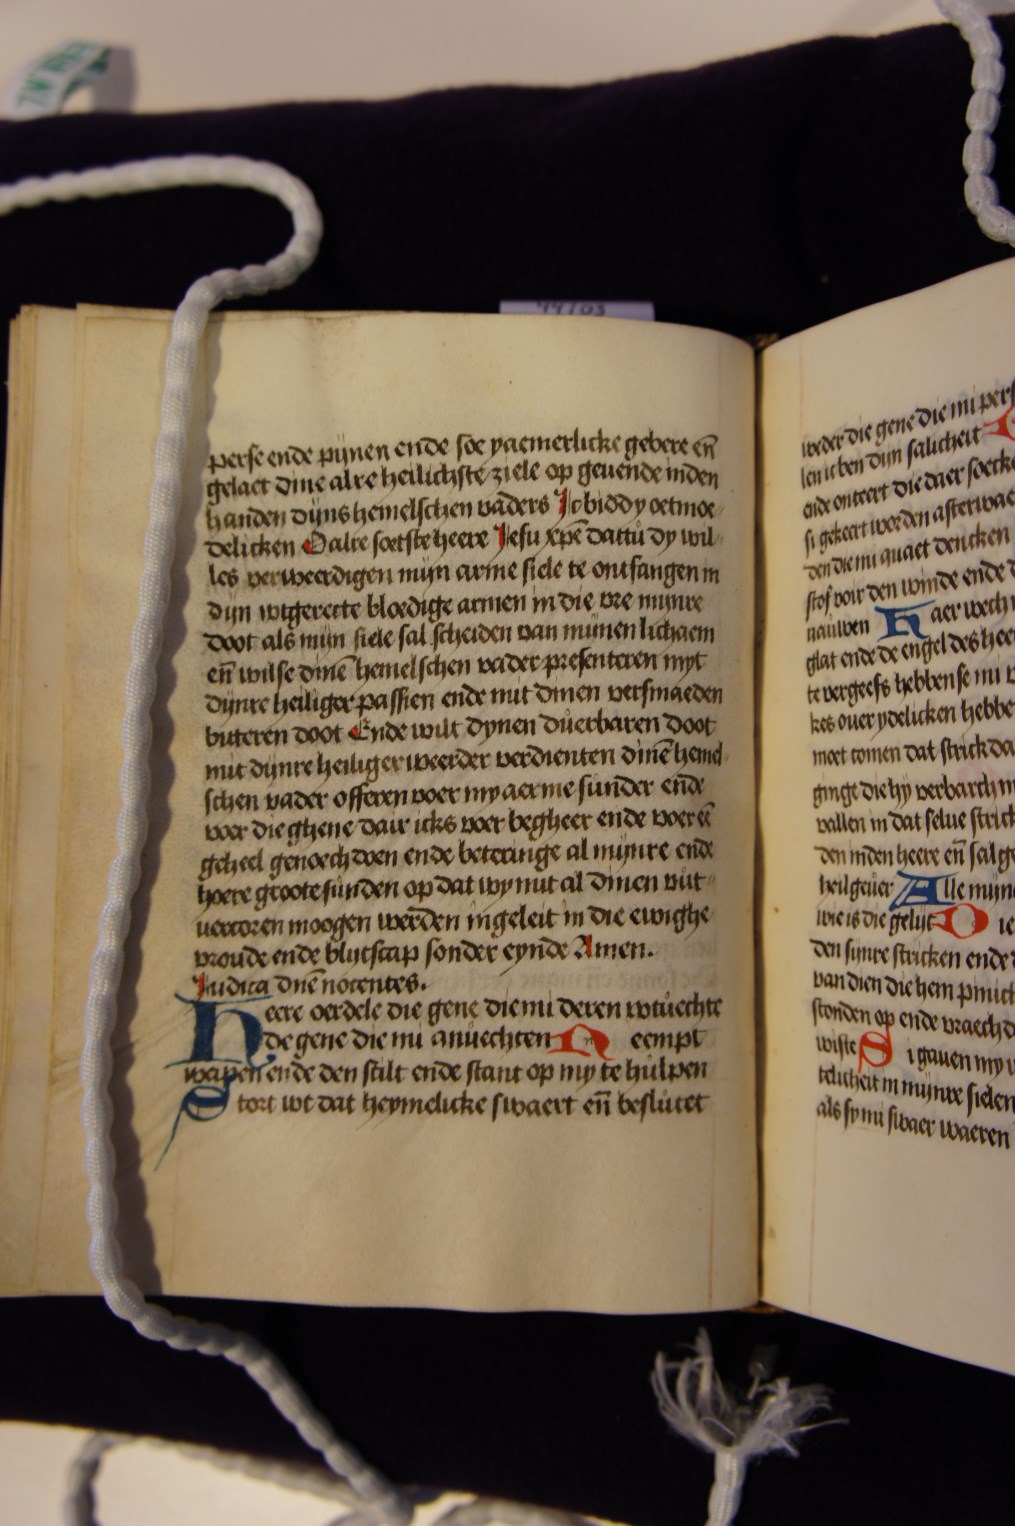 perse ende pijnen ende soe yaemerlicke gebere en̄
gelaet dine alre heilichste ziele op geuende inden
handen dijns hemelschen vaders Ic biddy oetmoe
delicken O alre soetste heere Jesu xp̄e dattu dy wil
les verweerdigen mijn arme siele te ontfangen in
dijn wtgerecte bloedige armen in die vre mijnre
doot als mijn siele sal scheiden van mijnen lichaem
en̄ wilse dinē hemelschen vader presenteren myt
dijnre heiliger passien ende mit dinen versmaeden
buteren doot Ende wilt dynen duerbaren doot
mit dijnre heiliger weerder verdienten dinē hemel
schen vader offeren voer my aerme sunder ende
voer die ghene dair icks voer begheer ende voer
geheel genoech doen ende beteringe al mijnre ende
hoere groote sunden op dat wy mit al dinen wt
uercoren moogen werden ingeleit in die ewighe
vroude ende blijtscap sonder eynde Amen.
Iudica dn̄e nocentes.
Heere oerdele die gene die mi deren wtuechte
de gene die mi anuechten Neempt
wapen ende den scilt ende stant op my te hulpen
Stort wt dat heymelicke swaert en̄ beslutet
44/03
weder die gene die mi
len ic ben dijn salicheit
ende onteert die daer
si gekeert worden
den die mi quaet dencken
stof voir den winde ende
nauwen Haer wech
glat ende de engel des
te vergeefs hebben se mi
kes ouer ydelicken hebbe
moet comen dat strick
ginge die hy verbarch
vallen in dat selue
den inden heere en̄ sal
heilgeuer Alle mijn
wie is die gelijc Die
den sijnre stricken ende
van dien die hem
stonden op ende
wiste Si gauen my
telicheit in mijnre sielen
als sy mi swaer waeren